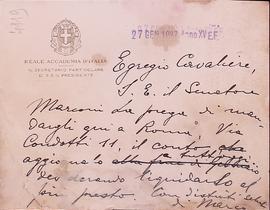 REALE ACCADEMIA D'ITALIA
IL SEGRETARIO PARTICOLARE
DI S. E. IL PRESIDENTE
27 GEN 1937 Anno XV EF
Egregio Cavaliere,
S. E. il Senatore
Marconi La prega di man-
dargli qui a Roma, Via
Condotti 11, il conto,
desiderando liquidarlo al
più presto. Con distinti